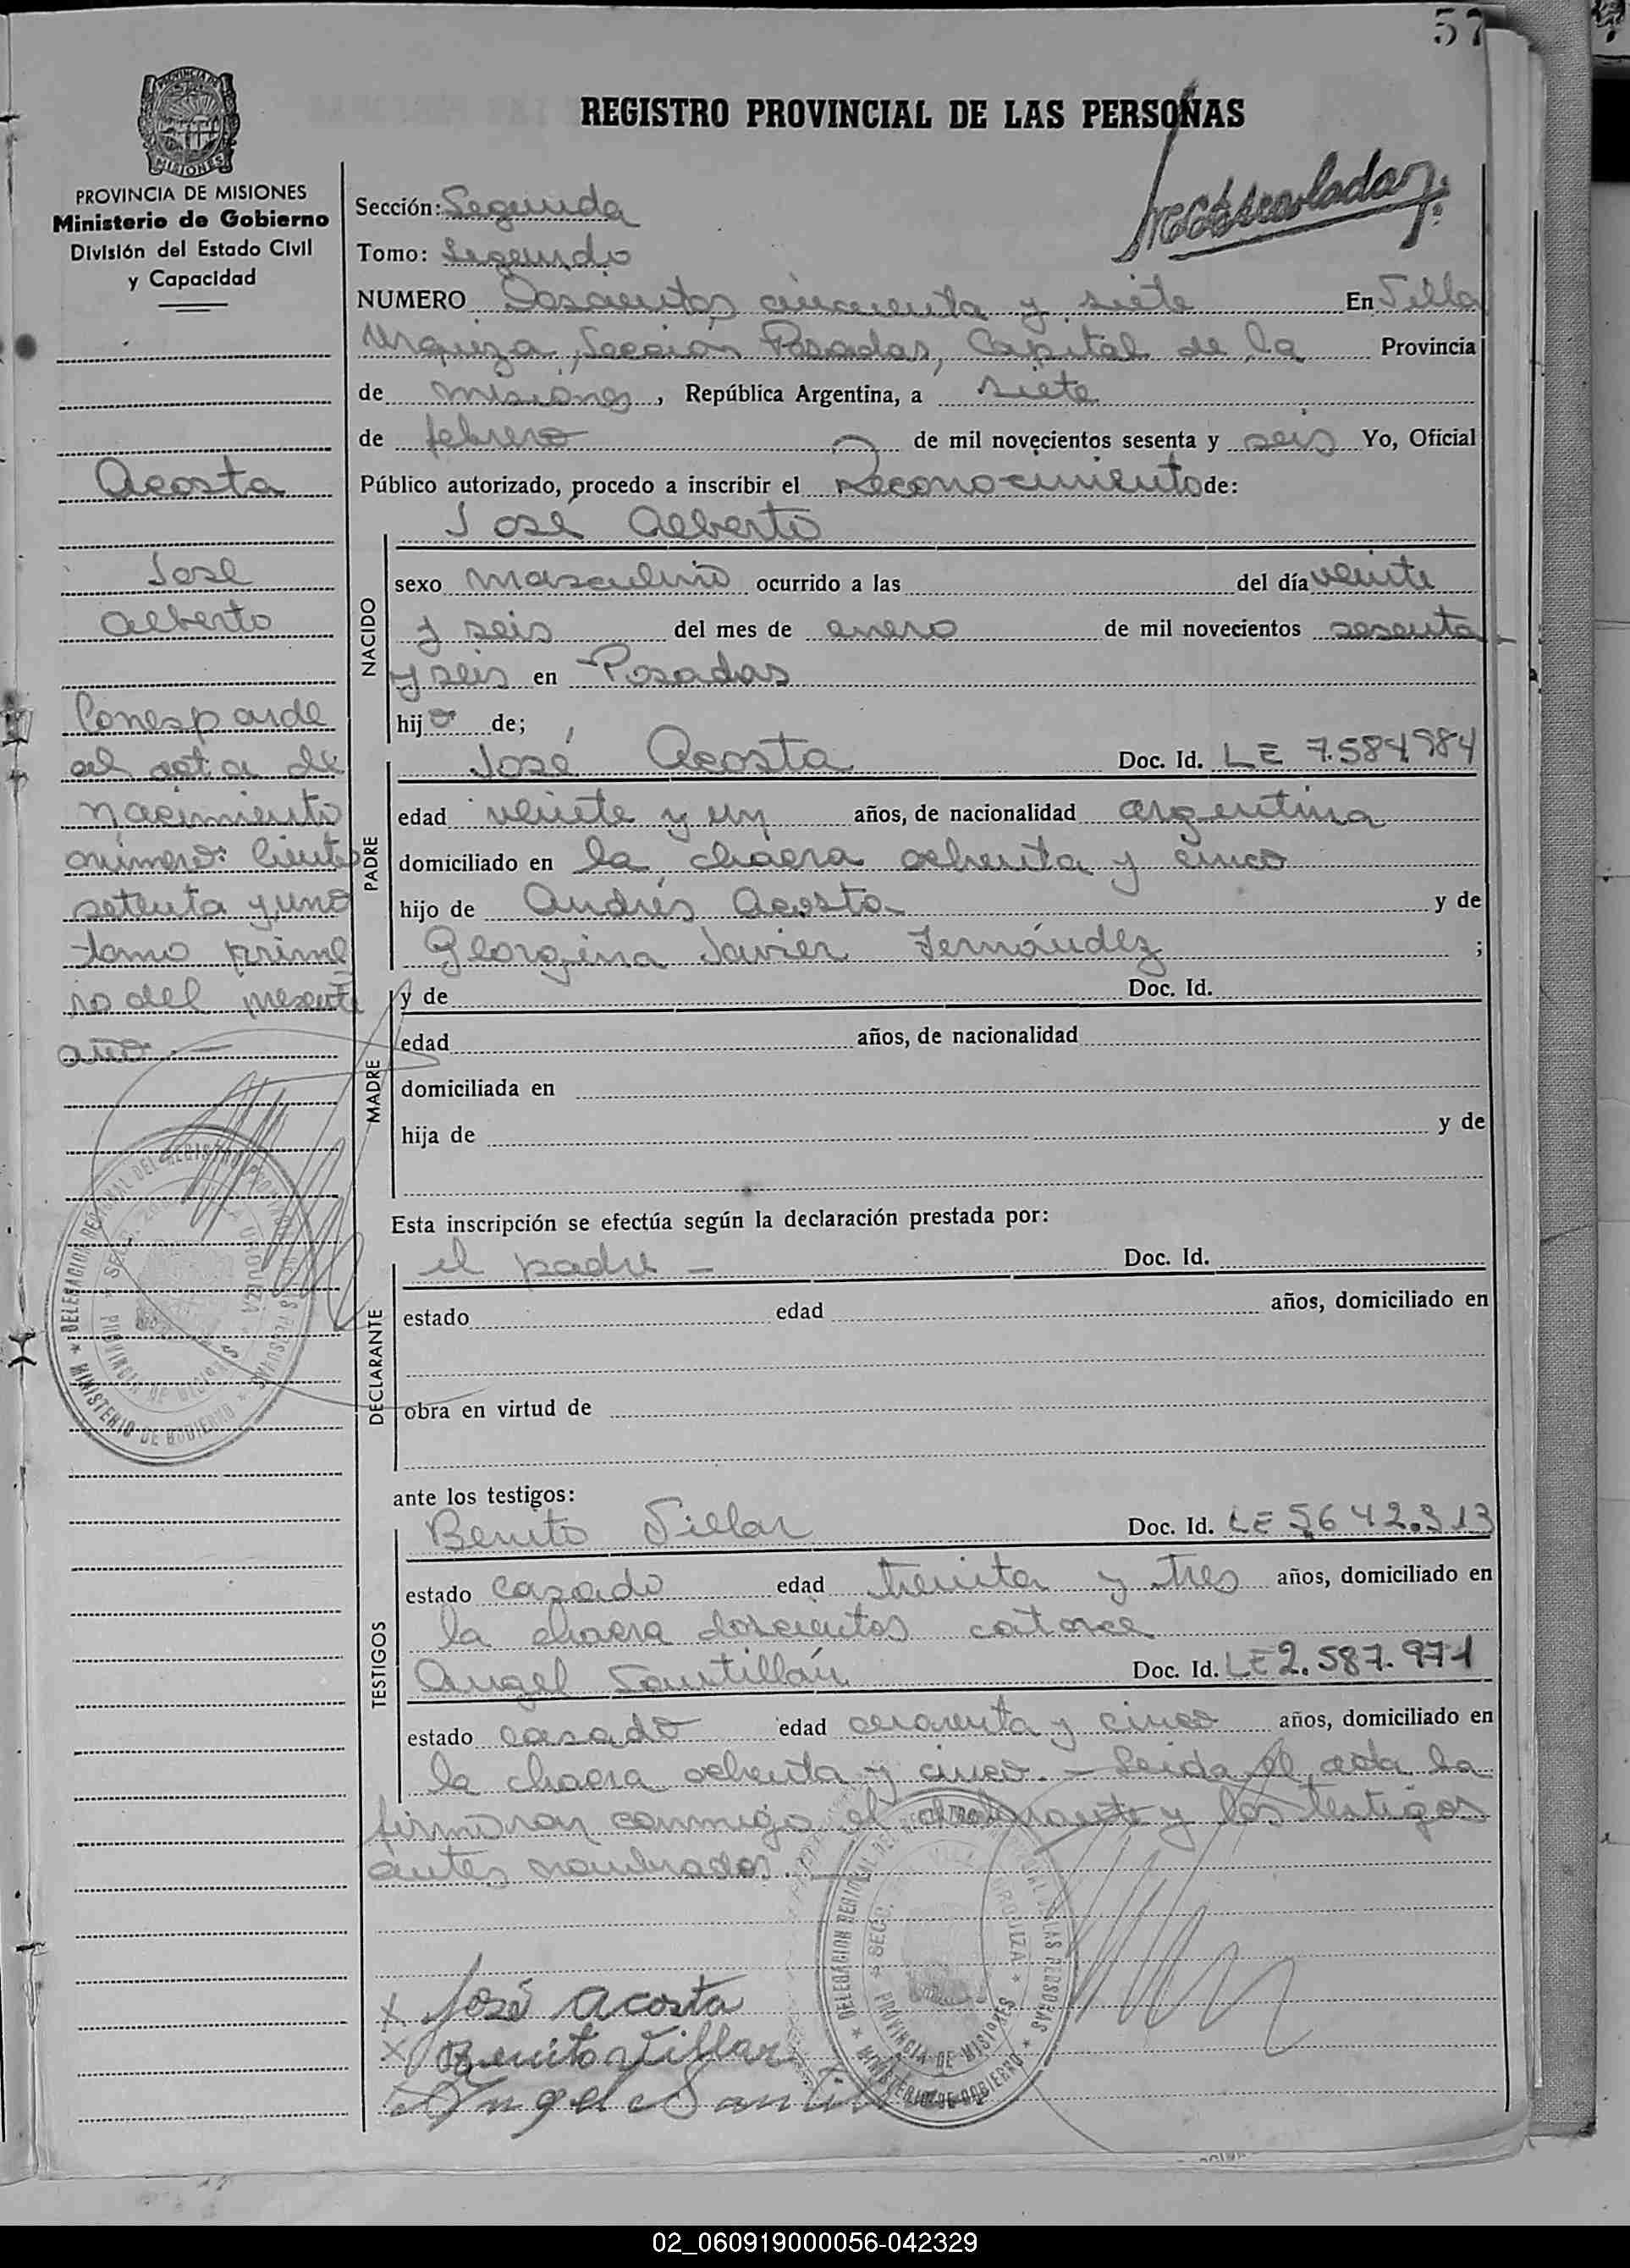 57
REGISTRO PROVINCIAL DE LAS PERSONAS
PROVINCIA DE MISIONES
Ministerio de Gobierno
División del Estado Civil
y Capacidad
Acosta
José
Alberto
Corresponde
al acta de
nacimiento
número: Ciento
setenta y uno
tomo prime
ro del presente
año.—
Sección: Segunda
Tomo: Segundo
NUMERO Doscientos cincuenta y siete En Villa
Urquiza, Sección Posadas, Capital de la Provincia
de Misiones, República Argentina, a siete
de febrero de mil novecientos sesenta y seis Yo, Oficial
Público autorizado, procedo a inscribir el Reconocimiento de:
José Alberto
NACIDO
sexo masculino ocurrido a las del día veinte
y seis del mes de enero de mil novecientos sesenta
y seis en Posadas
hijo de;
PADRE
José Acosta Doc. Id. LE 7.584.984
edad veinte y un años, de nacionalidad argentina
domiciliado en la chacra ochenta y cinco
hijo de Andrés Acosta y de
Georgina Javier Fernández ;
MADRE
y de Doc. Id.
edad años, de nacionalidad
domiciliada en
hija de y de
Esta inscripción se efectúa según la declaración prestada por:
DECLARANTE
el padre — Doc. Id.
estado edad años, domiciliado en
obra en virtud de
ante los testigos:
TESTIGOS
Benito Villar Doc. Id. LE 5.642.313
estado casado edad treinta y tres años, domiciliado en
la chacra doscientos catorce
Angel Santillán Doc. Id. LE 2.587.971
estado casado edad cuarenta y cinco años, domiciliado en
la chacra ochenta y cinco.— Leida el acta la
firmaron conmigo el declarante y los testigos
antes nombrados.—
José Acosta
Benito Villar
Angel Santill
DELEGACION REGIONAL DEL REGISTRO PROVINCIAL DE LAS PERSONAS
MINISTERIO DE GOBIERNO
VILLA URQUIZA
PROVINCIA DE MISIONES
02_060919000056-042329